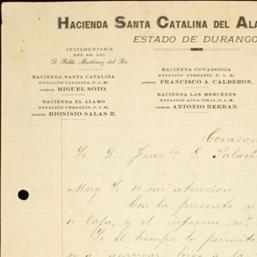 HACIENDA SANTA CATALINA DEL ALA
ESTADO DE DURANGO
TESTAMENTARIA
DEL SR. LIC.
D. Pablo Martínez del Río
HACIENDA SANTA CATALINA
ESTACIÓN CATALINA, F. I. M.
ADMOR. MIGUEL SOTO.
HACIENDA EL ÁLAMO
ESTACIÓN YERBANÍS, F. I. M.
ADMOR. DIONISIO SALAS H.
HACIENDA COVADONGA
ESTACIÓN YERBANÍS, F. I. M.
ADMOR. FRANCISCO A. CALDERON.
HACIENDA LAS MERCEDES
ESTACIÓN AGUA VIEJA, F. I. M.
ADMOR. ANTONIO HERRAN.
Covadon
Sr. D. Fran.co E. Palaci
Muy Sr. de mi atencion:
Con la presente
de Caja, y el informe nº
Si el tiempo lo permite